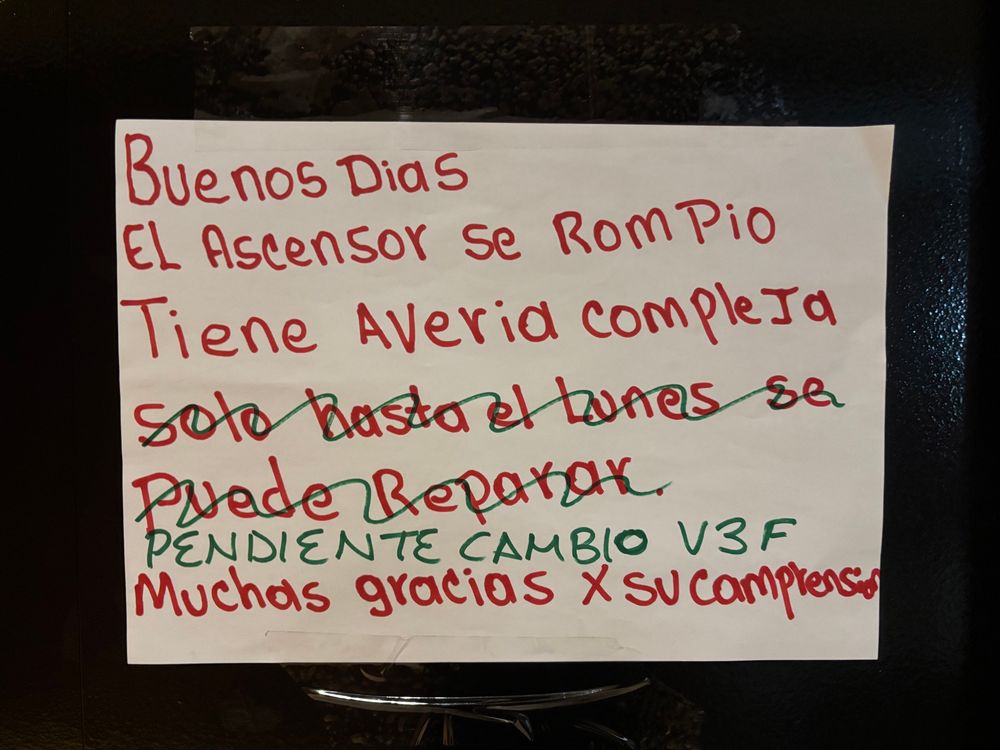 Buenos Dias
El Ascensor se Rompio
Tiene Averia compleja
solo hasta el Lunes se
Puede Reparar.
PENDIENTE CAMBIO V3F
Muchas gracias X su comprension